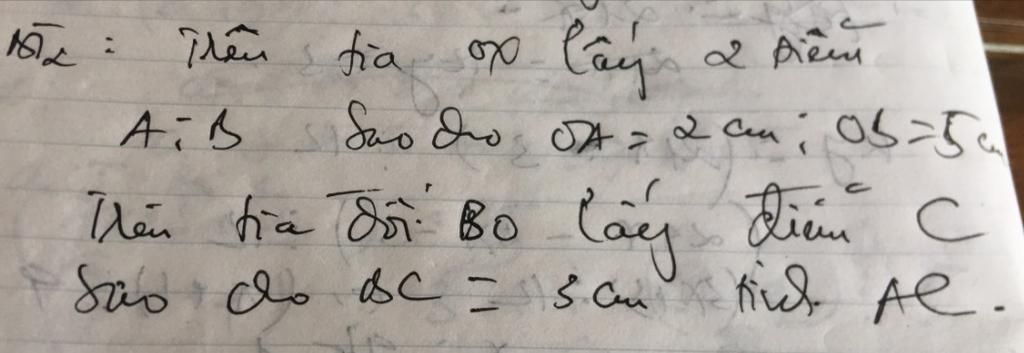 B2: Trên tia ox lấy 2 điểm
A; B Sao cho OA = 2 cm; OB = 5 cm
Trên tia đối BO lấy điểm C
Sao cho BC = 3 cm tính AC.